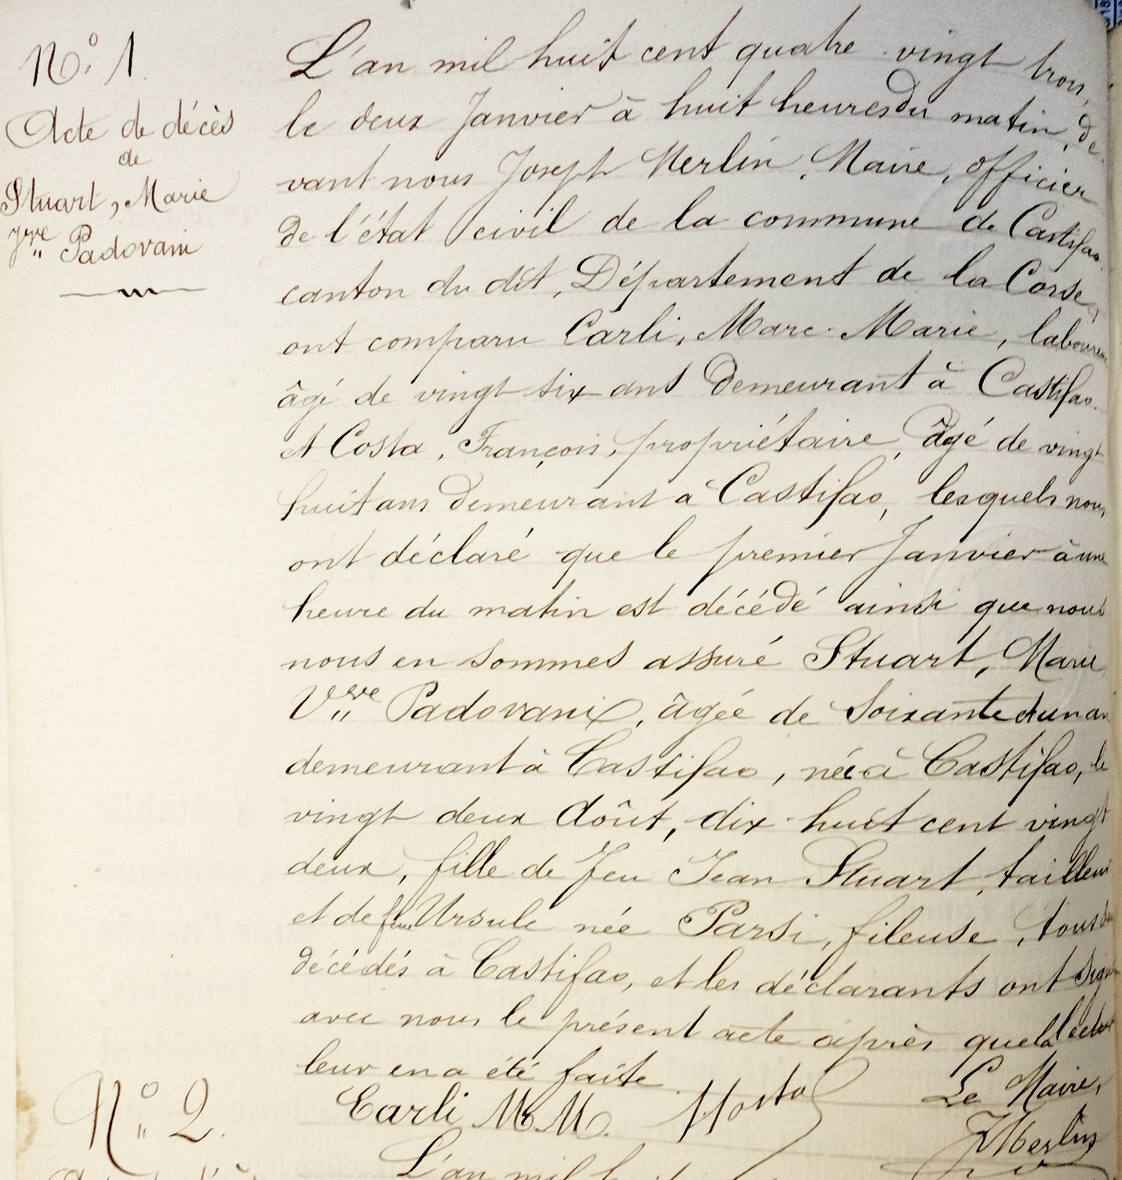 N° 1.
Acte de décès
de
Stuart, Marie
Vve Padovani
L'an mil huit cent quatre vingt trois,
le deux Janvier à huit heures du matin, de
vant nous Joseph Merlin, Maire, officier
de l'état civil de la commune de Castifao
canton du dit, Département de la Corse,
ont comparu Carli, Marc-Marie, laboureur
âgé de vingt six ans demeurant à Castifao
et Costa, François, propriétaire, âgé de vingt
huit ans demeurant à Castifao, lesquels nous
ont déclaré que le premier Janvier à une
heure du matin est décédé ainsi que nous
nous en sommes assuré Stuart, Marie
Vve Padovani, âgée de soixante et un an
demeurant à Castifao, née à Castifao, le
vingt deux Août, dix huit cent vingt
deux, fille de feu Jean Stuart, tailleur
et de feue Ursule née Parsi, fileuse, tous deux
décédés à Castifao, et les déclarants ont signé
avec nous le présent acte après que la lecture
leur en a été faite
Carli M. M.
Le Maire,
JMerlin
N° 2.
L'an mil